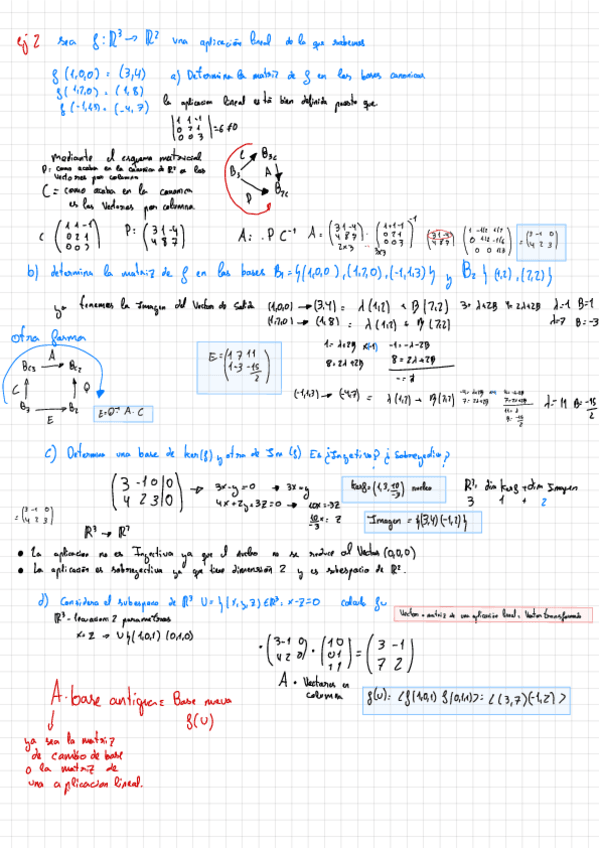 ej 2 sea f: R³ → R² una aplicación lineal de la que sabemos
f (1,0,0) = (3,4) a) Determina la matriz de f en las bases canonicas
f (1,2,0) = (1,8)
f (-1,1,3) = (-4,7) la aplicacion lineal está bien definida puesto que
|1 1 -1|
|0 2 1| = 6 ≠ 0
|0 0 3|
Mediante el esquema matricial
P: como acaba en la canonica de R² es los
vectores por columna
C = como acaba en la canonica
es los vectores por columna
C B3c
B3 A
P B2c
C (1 1 -1 / 0 2 1 / 0 0 3) P: (3 1 -4 / 4 8 7) A: P C⁻¹ A = (3 1 -4 / 4 8 7) · (1 1 -1 / 0 2 1 / 0 0 3)⁻¹ (3 1 -4 / 4 8 7) = (3 -1 0 / 4 2 3)
2x3 3x3
b) determina la matriz de f en las bases B1 = {(1,0,0), (1,2,0), (-1,1,3)} y B2 {(1,2), (2,2)}
tenemos la Imagen del Vector de
(1,0,0) → (3,4) = λ(1,2) + β(2,2) λ=1 β=1
(1,2,0) → (1,8) = λ(1,2) + β(2,2) λ=7 β=-3
otra forma
A
Bc3 → Bc2
C Q
B3 → B2
E
E = Q⁻¹ A · C
E = (1 7 11 / 1 -3 -15/2)
1 = λ+2β x(-1) -1 = -λ-2β
8 = 2λ+2β 8 = 2λ+2β
(-1,1,3) → (-4,7) = λ(1,2) + β(2,2) λ = 11 β = -15/2
c) Determina una base de ker(f) y otra de Im (f) Es ¿Inyectiva? ¿Sobreyectiva?
(3 -1 0|0 / 4 2 3|0) → 3x-y=0 → 3x=y
4x+2y+3z=0 → 10x=-3z
10/-3 x = z
kerf = (1,3,10/-3) nucleo
R³: dim kerf + dim Imagen
3 1 + 2
= (3 -1 0 / 4 2 3)
R³ → R²
Imagen = {(3,4)(-1,2)}
• La aplicacion no es Inyectiva ya que el nucleo no se reduce al Vector (0,0,0)
• La aplicación es sobreyectiva ya que tiene dimensión 2 y es subespacio de R².
d) Considera el subespacio de R³ U = {(x,y,z) ∈ R³: x-z=0 calcula f(U)
Vector · matriz de una aplicación lineal = Vector transformado
x=z → U{(1,0,1) (0,1,0)
· (3 -1 0 / 4 2 0) · (1 0 / 0 1 / 1 1) = (3 -1 / 7 2)
A · Vectores en
columna
f(U): <f(1,0,1) f(0,1,1)>: <(3,7)(-1,2)>
A · base antigua = Base nueva
f(U)
ya sea la matriz
de cambio de base
o la matriz de
una aplicacion lineal.